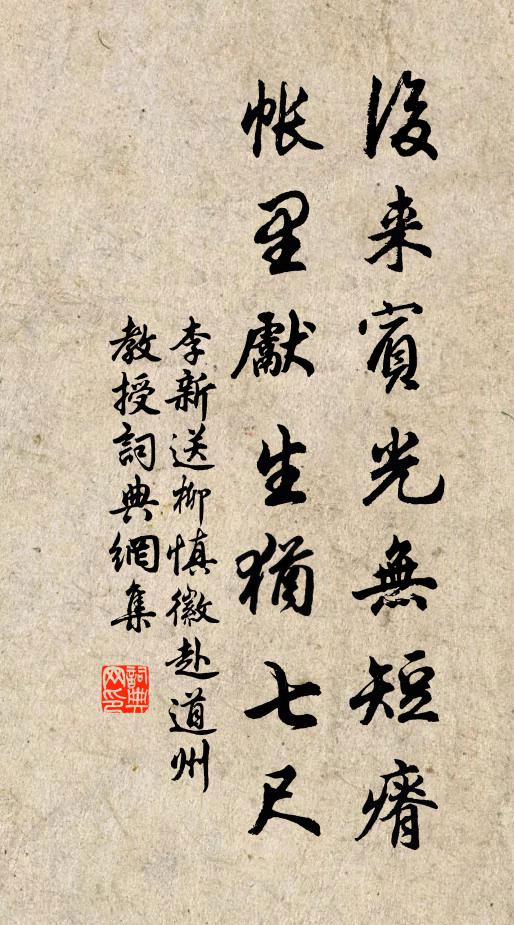 後来賓光無短瘠
帳里獻生猶七尺
李新送柳慎徽赴道州
教授詞典網集
詞典網印